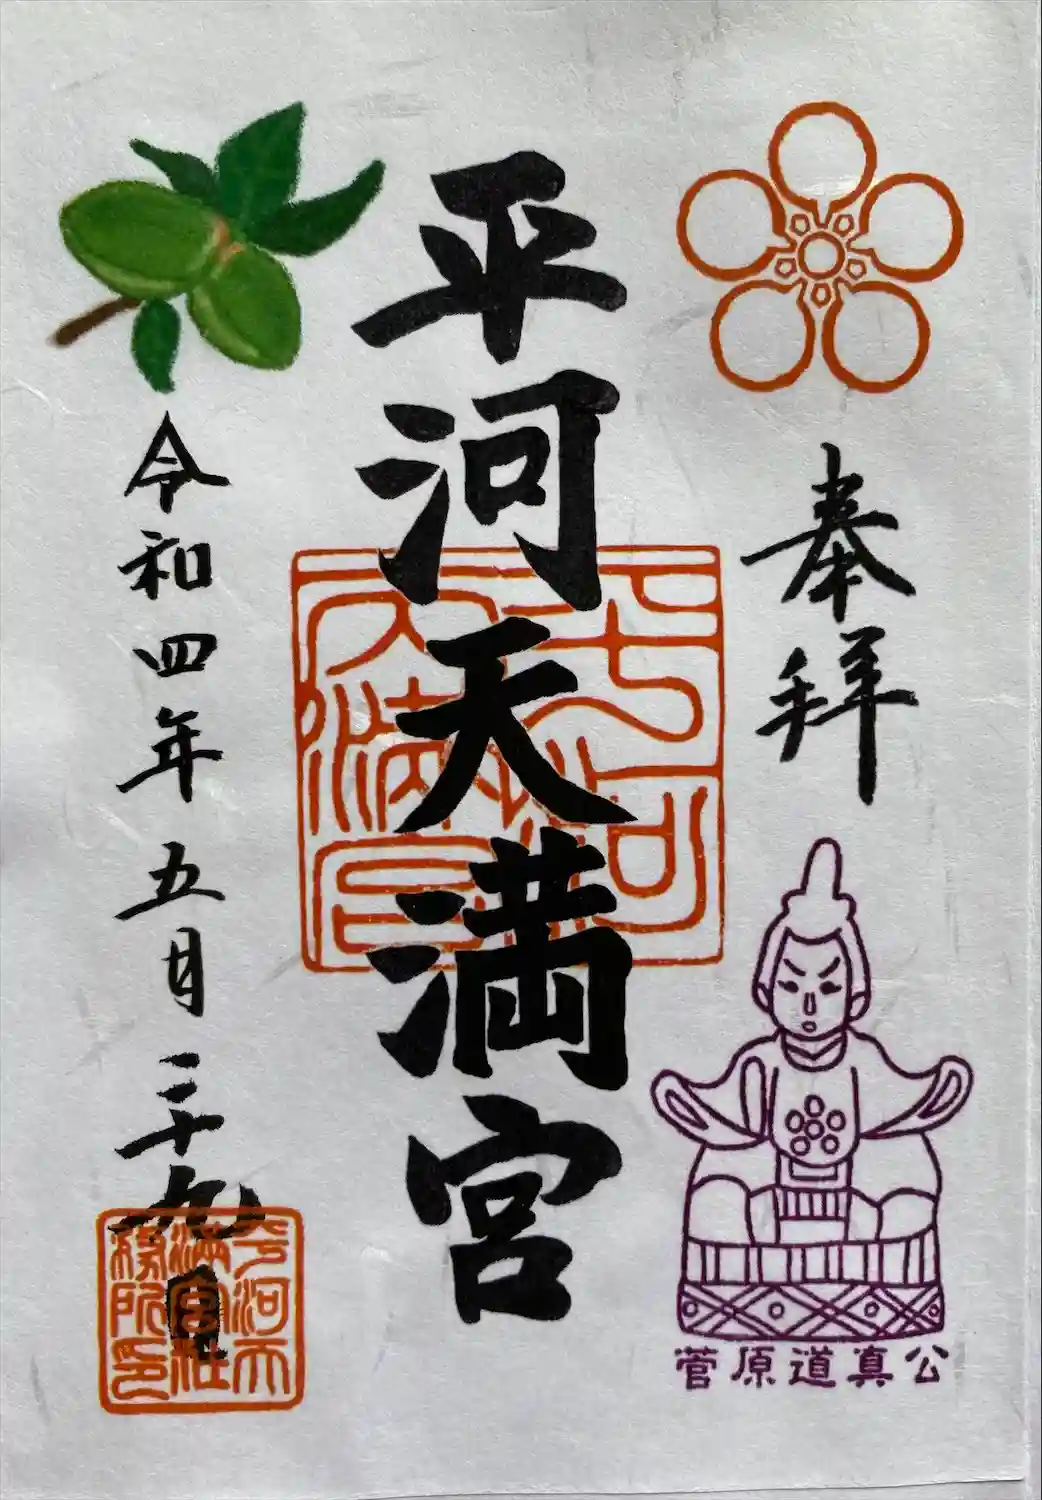 奉拝
菅原道真公
平河天満宮
平河天満宮
令和四年五月二十九日
平河天
満宮社
務所印